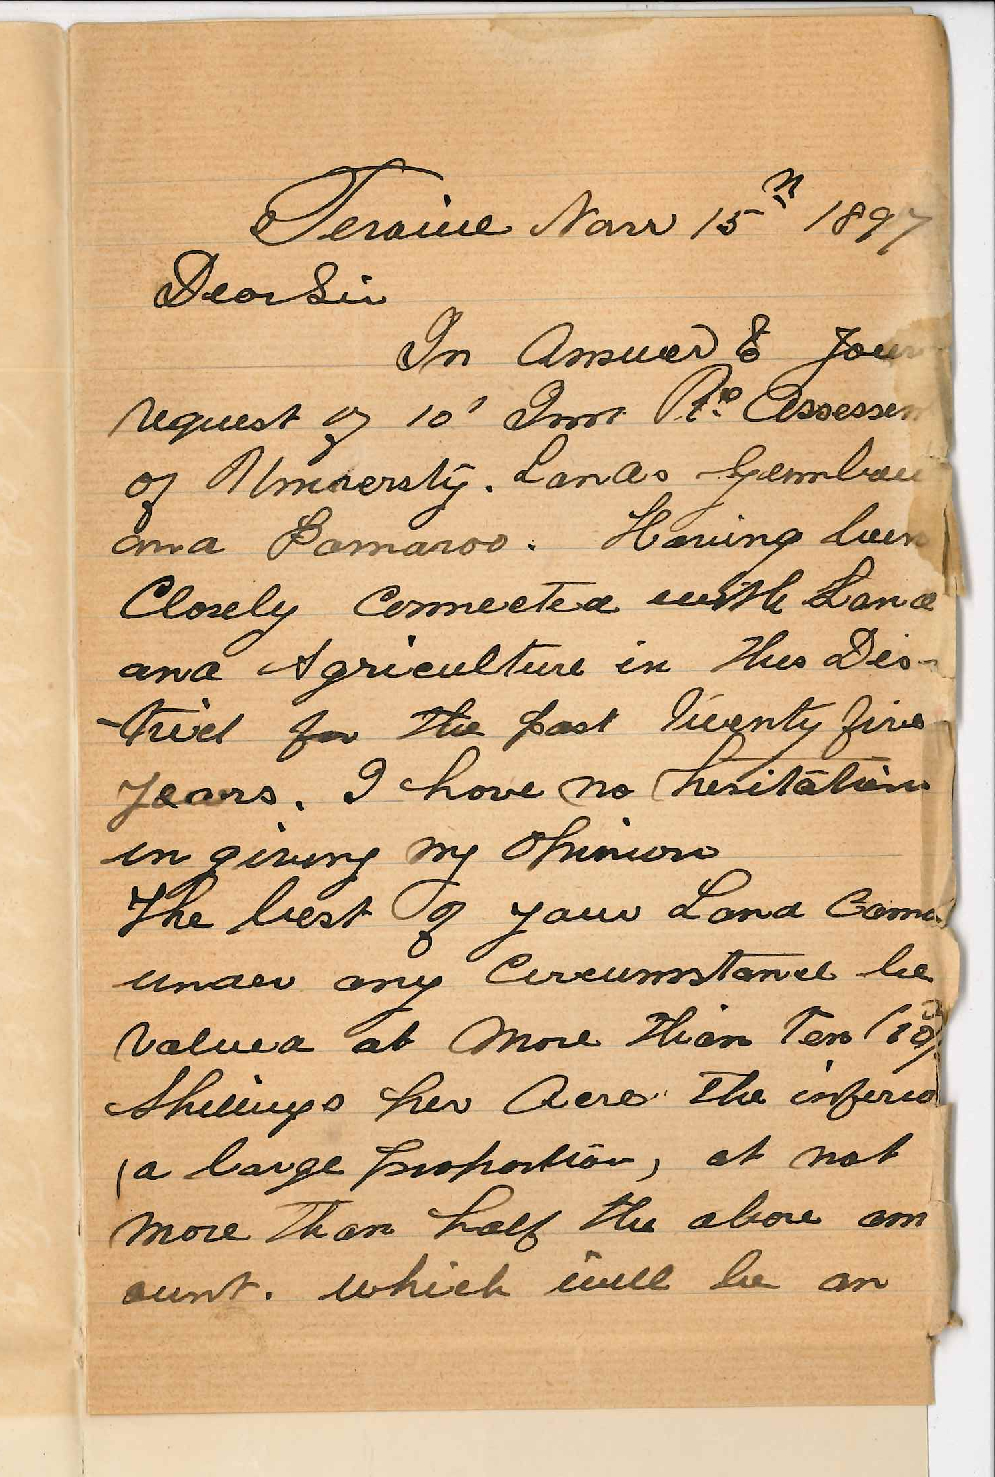 Narr 15th 1897
Dear Sir
In Answer to your
request of 10' Re Assessm
of University. Lands Gembau
and Bamaroo. Having been
Closely Connected with Land
and Agriculture in this Dis-
-trict for the past Twenty five
years. I have no hesitation
in giving my Opinion
The best of your Land Cann
under any Circumstance be
Valued at More than Ten (10/
Shillings per Acre The inferio
(a large proportion, at not
More than half the above am
ount. which will be an